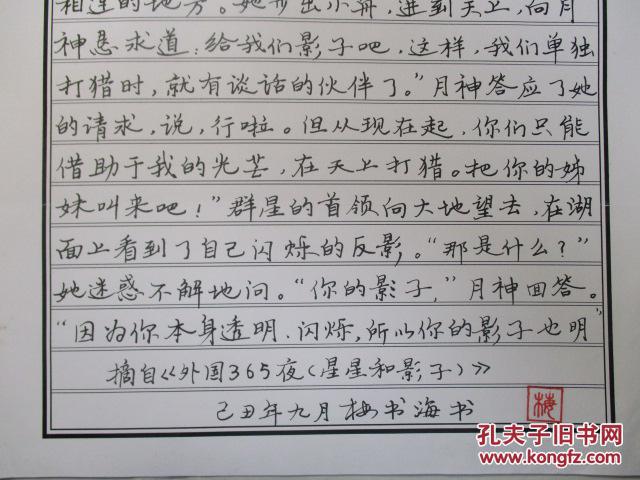 相连的地方。她步出小舟，进到天上，向月
神恳求道：给我们影子吧，这样，我们单独
打猎时，就有谈话的伙伴了。”月神答应了她
的请求，说，行啦。但从现在起，你们只能
借助于我的光芒，在天上打猎。把你的姊
妹叫来吧！”群星的首领向大地望去，在湖
面上看到了自己闪烁的反影。“那是什么？”
她迷惑不解地问。“你的影子，”月神回答。
“因为你本身透明、闪烁，所以你的影子也明”
摘自《外国365夜(星星和影子)》
己丑年九月梅书海书
梅
孔夫子旧书网
www.kongfz.com